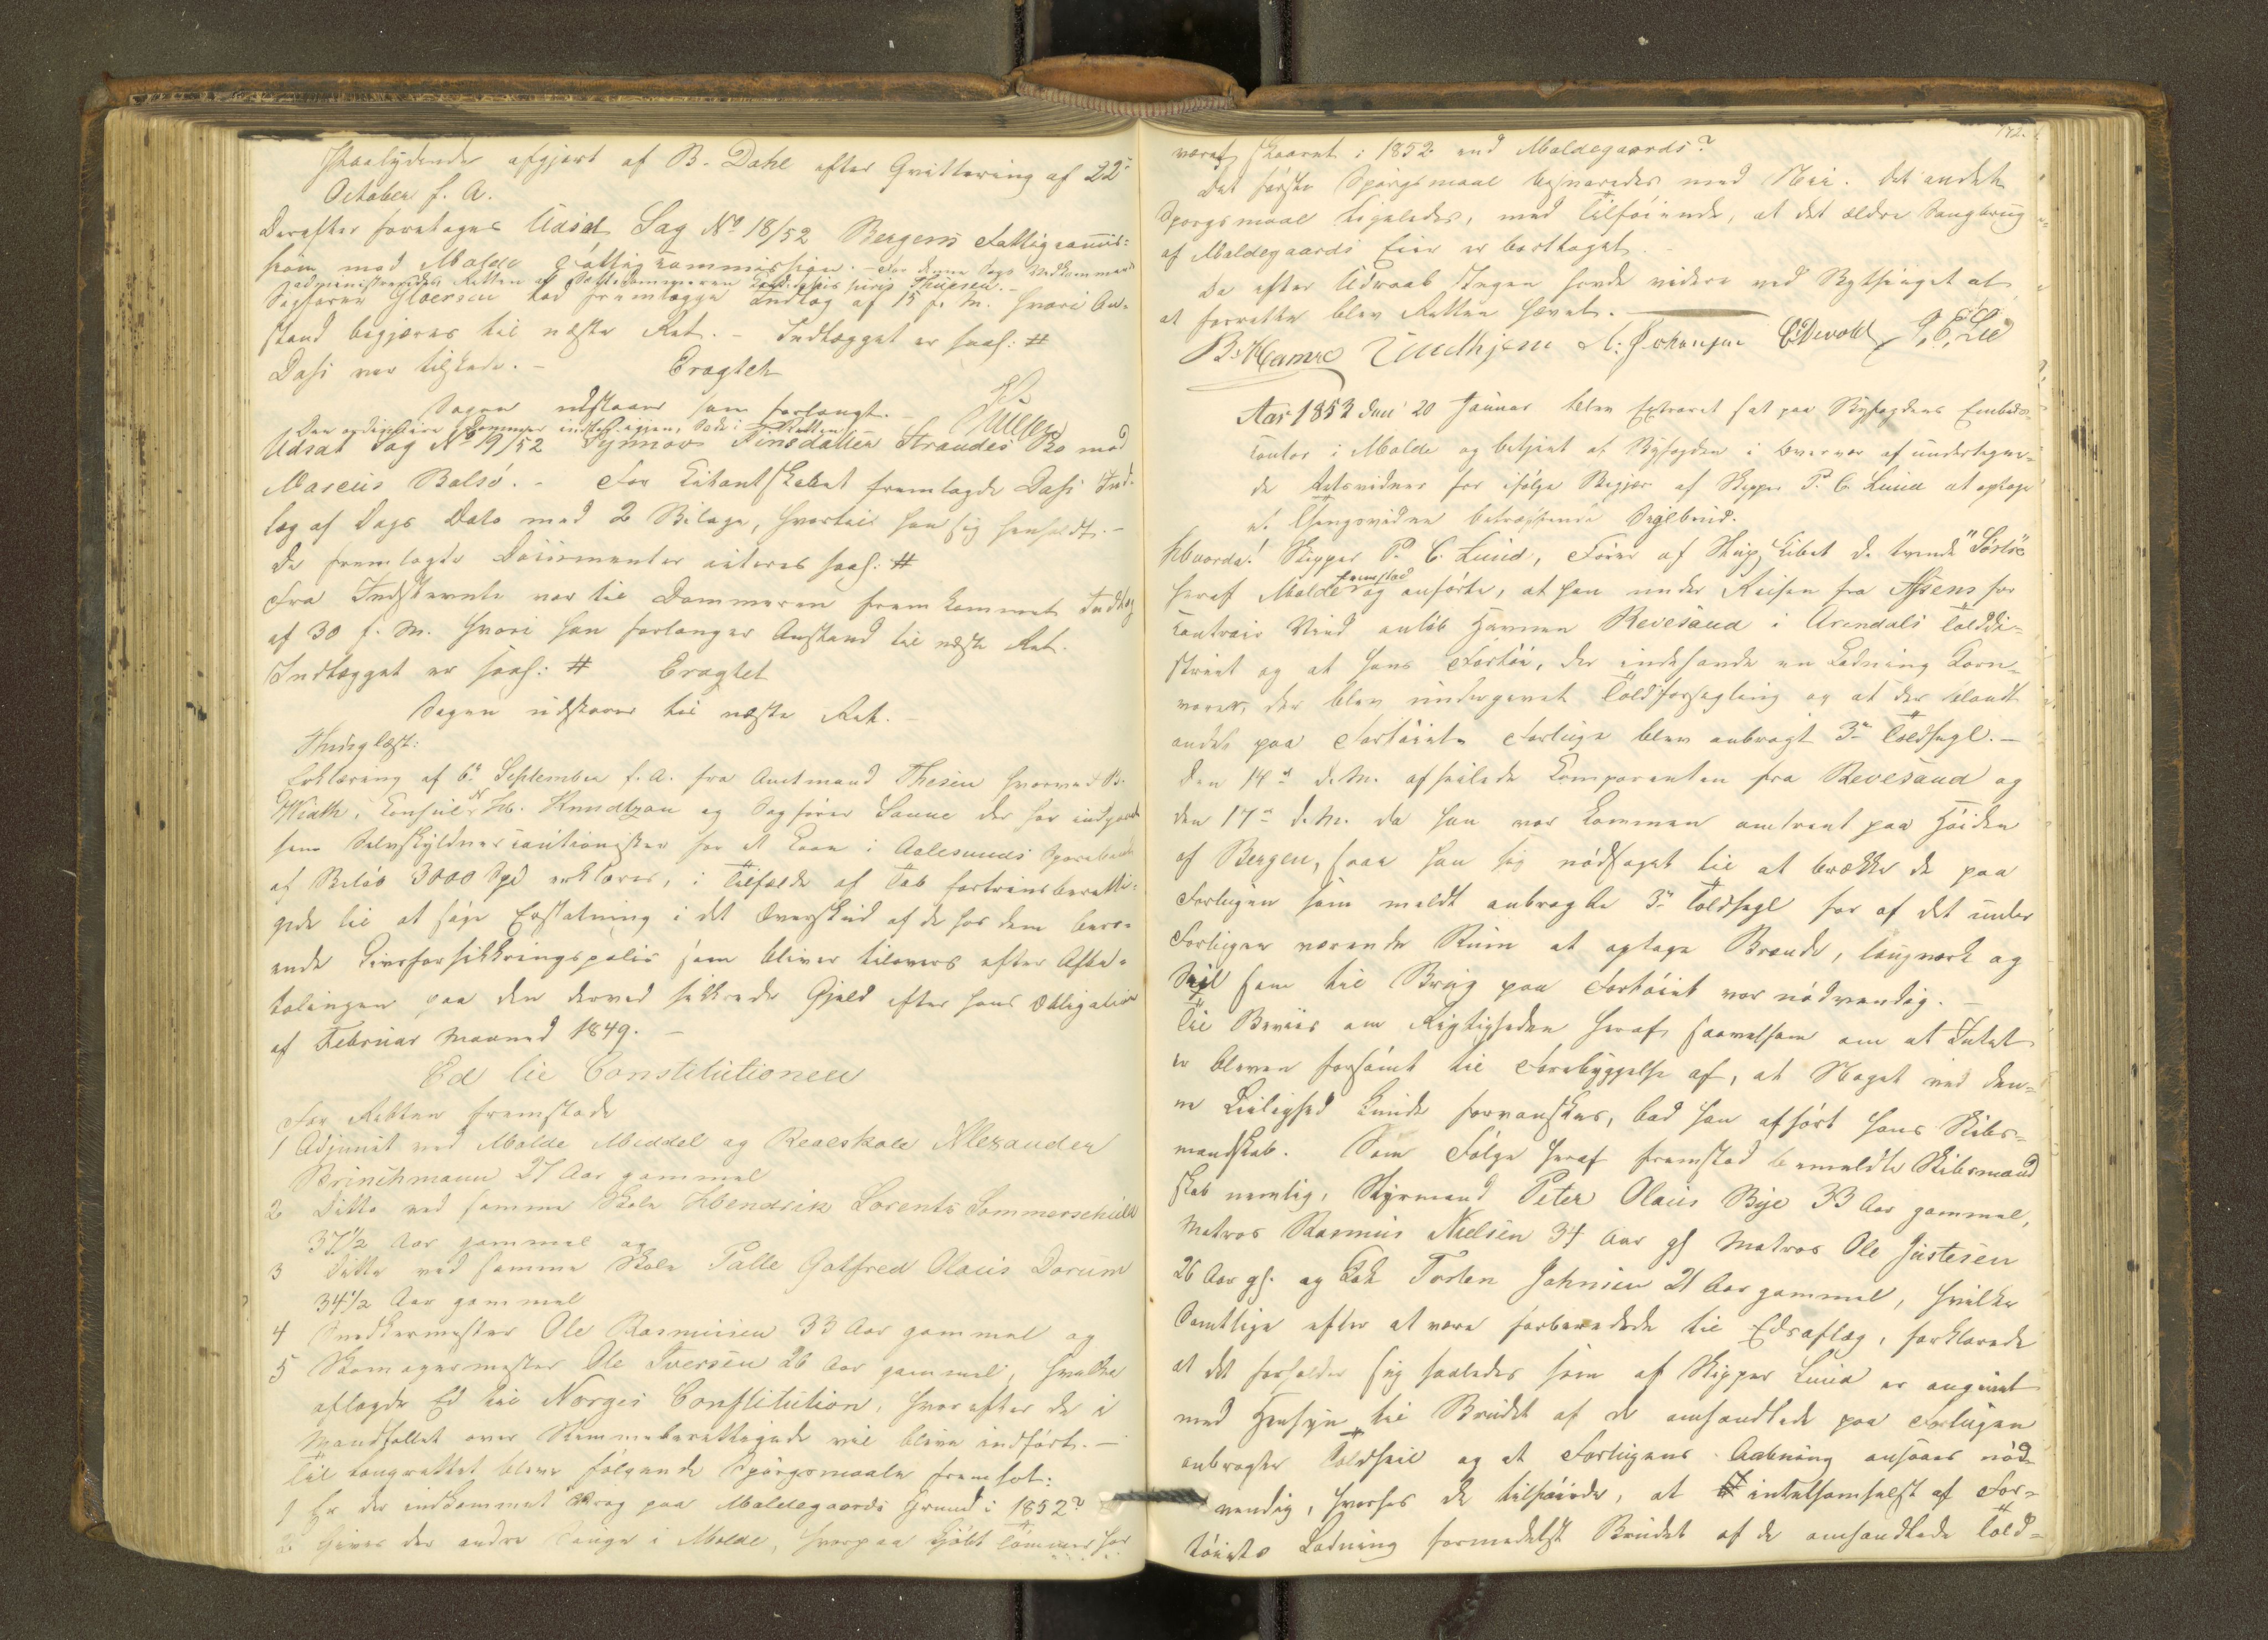 Paalydende afgjort af B. Dahl efter Qvittering af 22de
October f. A.
Derefter foretoges Udsat Sag No 18/52 Bergens Fattigcommis-
sion mod Molde Fattigcommission. - For denne Sags Vedkommende
administreredes Retten af Sættedommeren Candidatus juris Thuesen. -
Sagfører Gløersen lod fremlægge Indlæg af 15 f. M. hvori An-
stand begjæres til næste Ret. - Indlægget er saal: #
Dahl var tilstede. - Eragtet
Sagen udstaaer som forlangt.
Thuesen
Den ordinaire Dommer indtog igjen Sæde i Retten
Udsat Sag No 19/52 Synnøve Finsdatter Strandes Bo mod
Marcus Bolsø. - For Citantskabet fremlagde Dahl Ind-
læg af Dags Dato med 2 Bilage, hvortil han sig henholdt. -
De fremlagte Documenter citeres saal: #
Fra Indstevnte var til Dommeren fremkommet Indlæg
af 30 f. M. hvori han forlanger Anstand til næste Ret.
Indlægget er saal: # Eragtet
Sagen udstaaer til næste Ret. -
Thinglæst:
Erklæring af 6te September f. A. fra Amtmand Thesen hvorved B.
Wiath, Consul N. H. Knudtzon og Sagfører Sanne der har indgaaet
som Selvskyldnercautionister for et Laan i Aalesunds Sparebank
af Beløb 3000 Spd erklæres, i Tilfælde af Tab fortrinsberetti-
gede til at søge Erstatning i det Overskud af de hos dem bero-
ende Livsforsikkringspolis som bliver tilovers efter Afbe-
talingen paa den derved sikkrede Gjeld efter hans Obligation
af Februar Maaned 1849. -
Ed til Constitutionen
For Retten fremstode
1 Adjunct ved Molde Middel og Realskole Alexander
Brinchmann 27 Aar gammel
2 Ditto ved samme Skole Hendrik Lorents Sommerschield
37 1/2 Aar gammel og
3 Ditto ved samme Skole Palle Gotfred Olaus Dorum
34 1/2 Aar gammel
4 Snedkermester Ole Rasmussen 33 Aar gammel og
5 Skomagermester Ole Iversen 26 Aar gammel, hvilke
aflagde Ed til Norges Constitution, hvorefter de i
Mandtallet over Stemmeberettigede vil blive indført. -
Til Laugrettet bleve følgende Spørgsmaale fremsat:
1 Er der indkommet Brag paa Moldegaards Grund i 1852?
2 Gives der andre Sauge i Molde, hvorpaa kjøbt Tømmer har
172.
været skaaret i 1852 end Moldegaards?
Det første Spørgsmaal besvaredes med Nei. Det andet
Spørgsmaal ligeledes, med Tilføiende, at det ældre Saugbrug
af Moldegaards Eier er borttaget. -
Da efter Udraab Ingen havde videre ved Bythinget at
at forrette blev Retten hævet.
B. Hamre Lindhjem A. Johansen E Devold P. C. Lie
Aar 1853 den 20 Januar blev Extraret sat paa Byfogdens Embeds-
contor i Molde og betjent af Byfogden i Overvær af undertegne-
de Retsvidner for ifølge Begjær af Skipper P. C. Lund at optage
et Thingsvidne betræffende Segelbrud.
Hvorda! Skipper P. C. Lund, Fører af Skip Libet de tvende Søstre
heraf Molde fremstod og anførte, at han under Reisen fra Assens for
contrair Vind anløb Havnen Revesand i Arendals Tolddi-
strict og at hans Fartøi, der indehavde en Ladning Korn-
varer, der blev undergivet Toldforsegling og at der blandt
andet paa Fartøiets Forluge blev anbragt 3de Toldsegl. -
Den 14de d. M. afseilede Comparenten fra Revesand og
den 17de d. M. da han var kommen omtrent paa Høiden
af Bergen, saae han sig nødsaget til at brække de paa
Forlugen som meldt anbragte 3de Toldsegl for af det under
Forlugen værende Rum at optage Brænde, Taugværk og
Seil som til Brug paa Fartøiet var nødvendig. -
Til Beviis om Rigtigheden heraf, saavelsom om at Intet
er bleven forsømt til Forebyggelse af, at Noget ved den-
ne Leilighed kunde forvanskes, bad han afhørt hans Skibs-
mandskab. Som Følge heraf fremstod bemeldte Skibsmand-
skab nemlig, Styrmand Peter Olaus Bye 33 Aar gammel,
Matros Rasmus Nielsen 34 Aar gl Matros Ole Justesen
26 Aar gl. og Kok Torsten Johnsen 21 Aar gammel, hvilke
Samtlige efter at være forberedede til Edsaflæg, forklarede
at det forholder sig saaledes som af Skipper Lund er angivet
med Hensyn til Bruddet af de omhandlede paa Forlugen
anbragte Toldseil og at Forlugens Aabning ansaaes nød-
vendig, hvorhos de tilføiede, at intetsomhelst af Far-
tøiets Ladning formedelst Bruddet af de omhandlede Told-